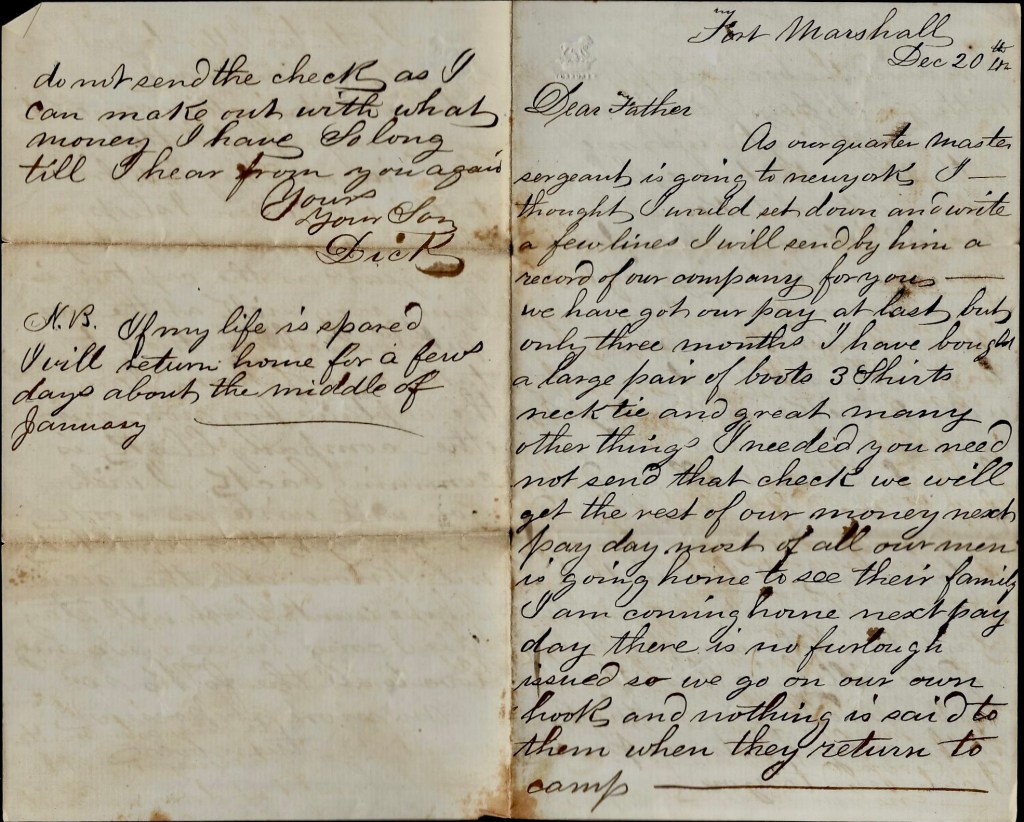 Fort Marshall
Dec 20th
Dear Father
As our quarter master
sergeant is going to newyork I —
thought I would set down and write
a few lines I will send by him a
record of our company for you —
we have got our pay at last but
only three months I have bought
a large pair of boots 3 Shirts
neck tie and great many
other things I needed you need
not send that check we will
get the rest of our money next
pay day most of all our men
is going home to see their family
I am coming home next pay
day there is no furlough
issued so we go on our own
hook and nothing is said to
them when they return to
camp —
do not send the check as I
can make out with what
money I have So long
till I hear from you again
Yours
Your Son
Dick
N.B. If my life is spared
I will return home for a few
days about the middle of
January —